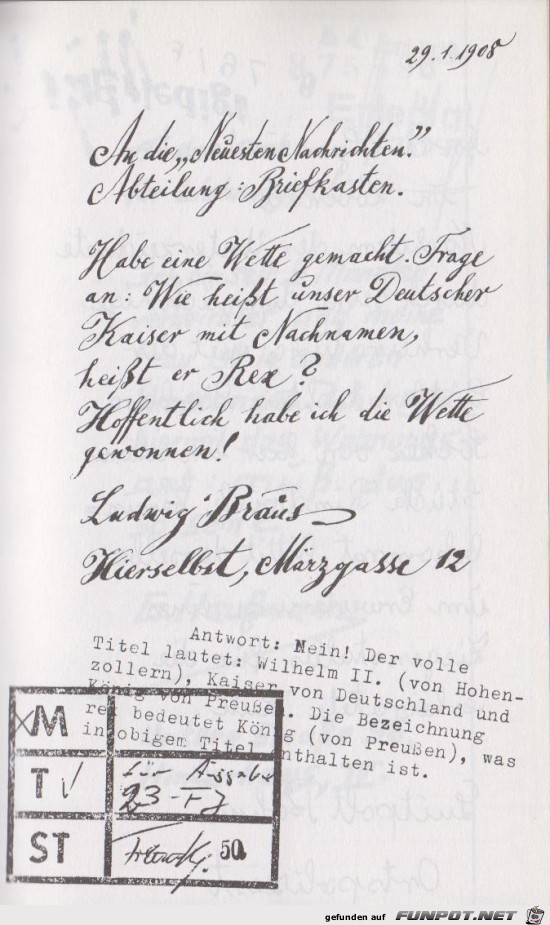 29.1.1908
An die „Neuesten Nachrichten“.
Abteilung: Briefkasten.
Habe eine Wette gemacht. Frage
an: Wie heißt unser Deutscher
Kaiser mit Nachnamen,
heißt er Rex?
Hoffentlich habe ich die Wette
gewonnen!
Ludwig Braus
Hierselbst, Märzgasse 12
Antwort: Nein! Der volle
Titel lautet: Wilhelm II. (von Hohen-
zollern), Kaiser von Deutschland und
König von Preußen. Die Bezeichnung
rex bedeutet König (von Preußen), was
in obigem Titel enthalten ist.
M
T
für Ausgabe
23-
ST
50
gefunden auf FUNPOT.NET